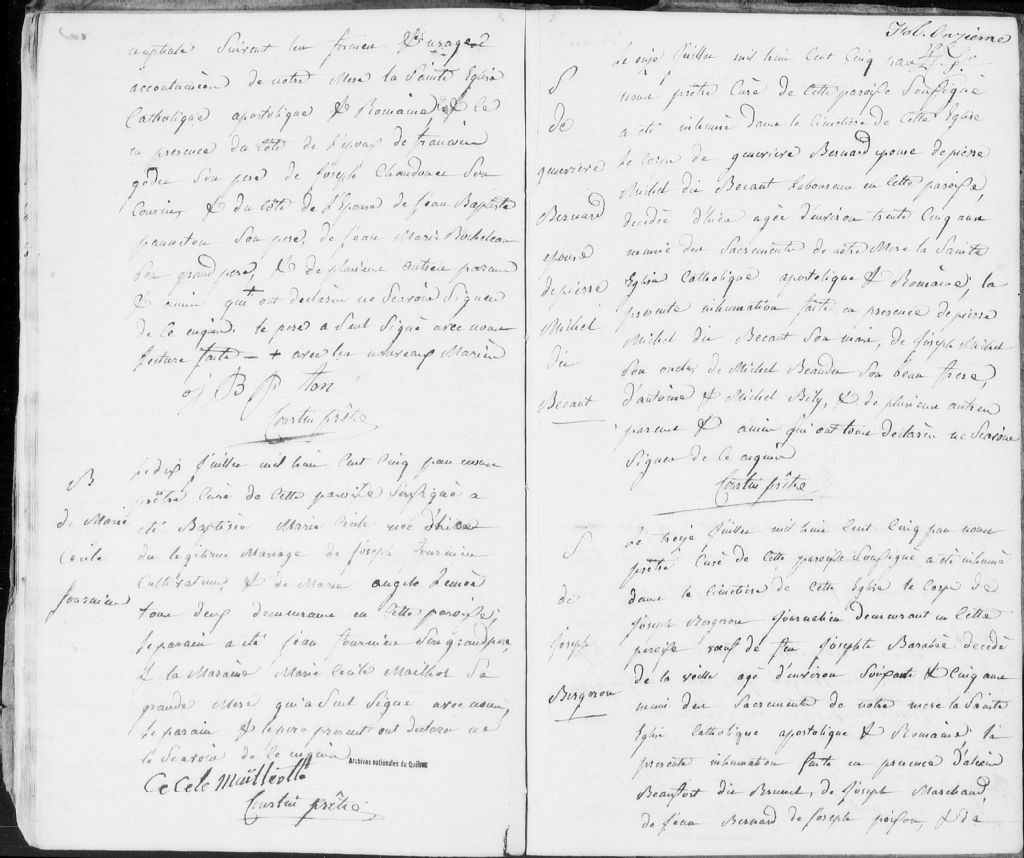 nuptiale suivant les formes & usages
accoutumées de notre Mere la Sainte Eglise
Catholique apostolique & Romaine & ce
en presence du côté de l'époux de francois
godin Son pere de Joseph Chandonet Son
Cousin, & du côté de l'Epouse de Jean Baptiste
panneton Son pere, de Jean Marie Rocheleau
Son grand pere, & de plusieurs autres parens
& amis qui ont declarés ne Scavoir Signer
de ce enquis. le pere a Seul Signé avec nous
lecture faite — + avec les nouveaux Mariés
J B P ton
Courtin prêtre
B
de Marie
Cecile
fournier
Le dix Juillet mil huit Cent Cinq par nous
prêtre Curé de Cette paroisse Soussigné a
été Baptisée Marie Cecile née d'hier
du legitime Mariage de Joseph fournier
Cultivateur, & de Marie angele
tous deux demeurans en Cette paroisse;
le parain a été Jean fournier Son grandpere
& la Maraine Marie Cecile Mailhot Sa
grande Mere qui a Seul Signé avec nous,
le parain & le pere present ont declaré ne
le Scavoir de ce enquis
Archives nationales du Québec
Cecile Mailhiotte
Courtin prêtre
Fol. Onzieme
S
de
genevieve
Bernard
epouse
de pierre
Michel
dit
Becaut
Le onze Juillet mil huit Cent Cinq par
nous prêtre Curé de Cette paroisse Soussigné
a été inhumé dans le Cimetiére de Cette Eglise
le Corps de genevieve Bernard epouse de pierre
Michel dit Becaut laboureur en Cette paroisse,
decedée d'hier agée d'environ trente Cinq ans
munie des Sacremens de notre Mere la Sainte
Eglise Catholique apostolique & Romaine; la
presente inhumation faite en presence de pierre
Michel dit Becaut Son mari, de Joseph Michel
Son oncle, de Michel Beaudet Son beau frere,
d'antoine & Michel Bily, & de plusieurs autres
parens & amis qui ont tous declarés ne Scavoir
Signer de ce enquis
Courtin prêtre
S
de
Joseph
Bergeron
Le treize Juillet mil huit Cent Cinq par nous
prêtre Curé de Cette paroisse Soussigné a été inhumé
dans le Cimetiére de Cette Eglise le Corps de
Joseph Bergeron Journalier demeurant en Cette
paroisse veuf de feu Josephte Barabée decedé
de la veille agé d'environ Soixante & Cinq ans
muni des Sacremens de notre mere la Sainte
Eglise Catholique apostolique & Romaine; la
presente inhumation faite en presence d'alexis
Beaufort dit Brunel, de Joseph Marchand,
de Jean Bernard de Joseph poisson, & de